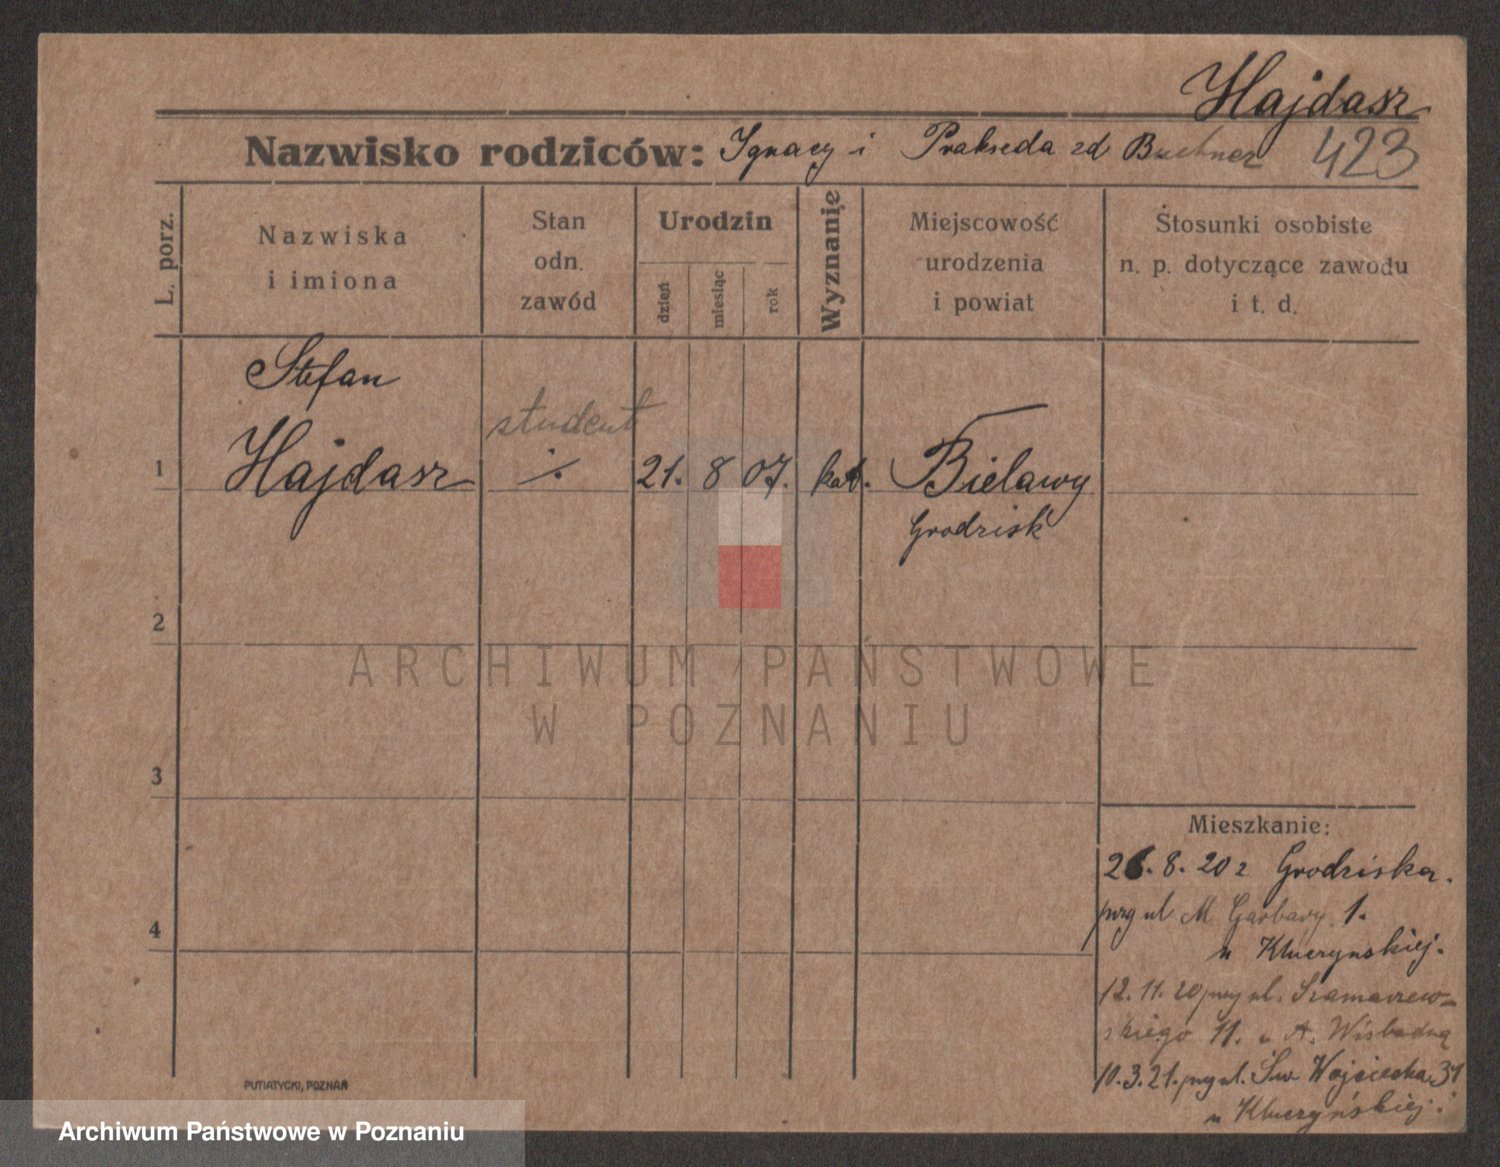 Hajdasz
Nazwisko rodziców: Ignacy i Prakseda zd Buchner 423
L. porz.
Nazwiska
i imiona
Stan
odn.
zawód
Urodzin
dzień
miesiąc
rok
Wyznanie
Miejscowość
urodzenia
i powiat
Stosunki osobiste
n. p. dotyczące zawodu
i t. d.
Stefan
student
1 Hajdasz ./. 21. 8 07. kat. Bielawy
Grodzisk
2
ARCHIWUM PAŃSTWOWE
W POZNANIU
3
Mieszkanie:
26. 8. 20 z Grodziska.
4 przy ul M Garbary 1.
u Kluczynskiej.
12. 11. 20 przy ul. Szamarzew-
skiego 11. u A.
10. 3. 21. przy ul. Św. Wojciecha 31
u Kluczyńskiej.
PUTIATYCKI, POZNAŃ
Archiwum Państwowe w Poznaniu